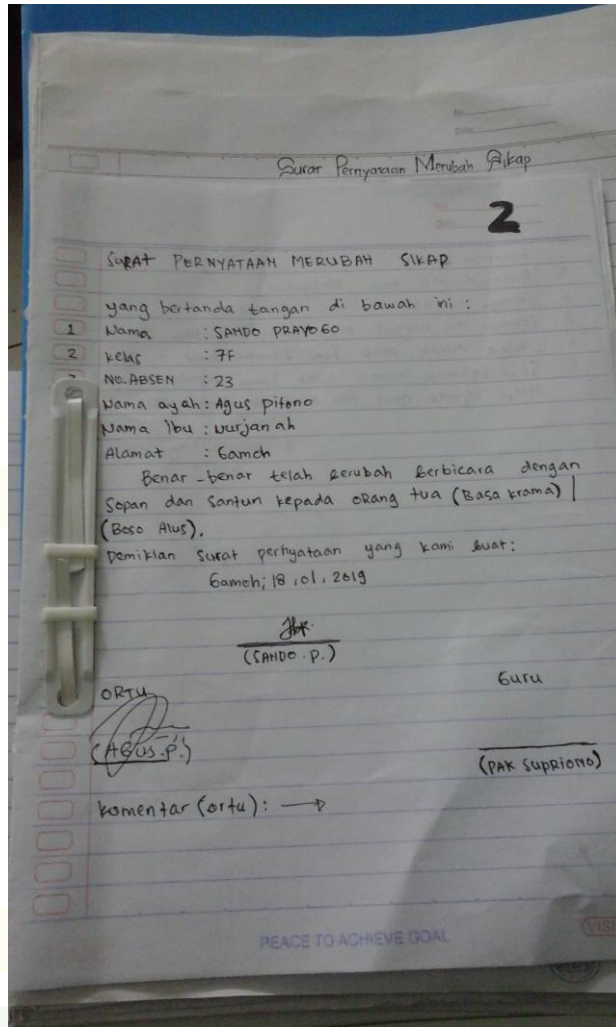 No:
Date:
Surat Pernyataan Merubah Sikap
2
SURAT PERNYATAAN MERUBAH SIKAP
yang bertanda tangan di bawah ini :
1 Nama : SANDO PRAYOGO
2 Kelas : 7F
NO.ABSEN : 23
Nama ayah : Agus pitono
Nama ibu : Nurjanah
Alamat : Gameh
Benar-benar telah berubah berbicara dengan
Sopan dan Santun kepada orang tua (Basa krama) |
(Boso Alus).
Demikian Surat pernyataan yang kami buat :
Gameh; 18, 01, 2019
(SANDO. P.)
ORTU
Guru
(AGUS.P.)
(PAK SUPRIONO)
komentar (ortu) : →
PEACE TO ACHIEVE GOAL